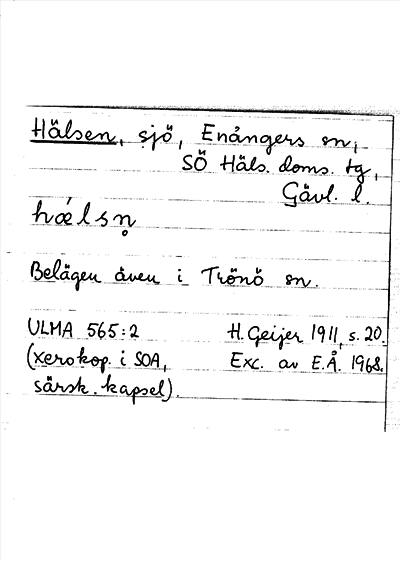 Hälsen, sjö, Enångers sn,
SÖ Häls. doms. tg,
Gävl. l.
hǽlsn̥
Belägen även i Trönö sn.
ULMA 565:2 H. Geijer 1911, s. 20.
(xerokop. i SOA, Exc. av E.Å. 1968.
särsk. kapsel).